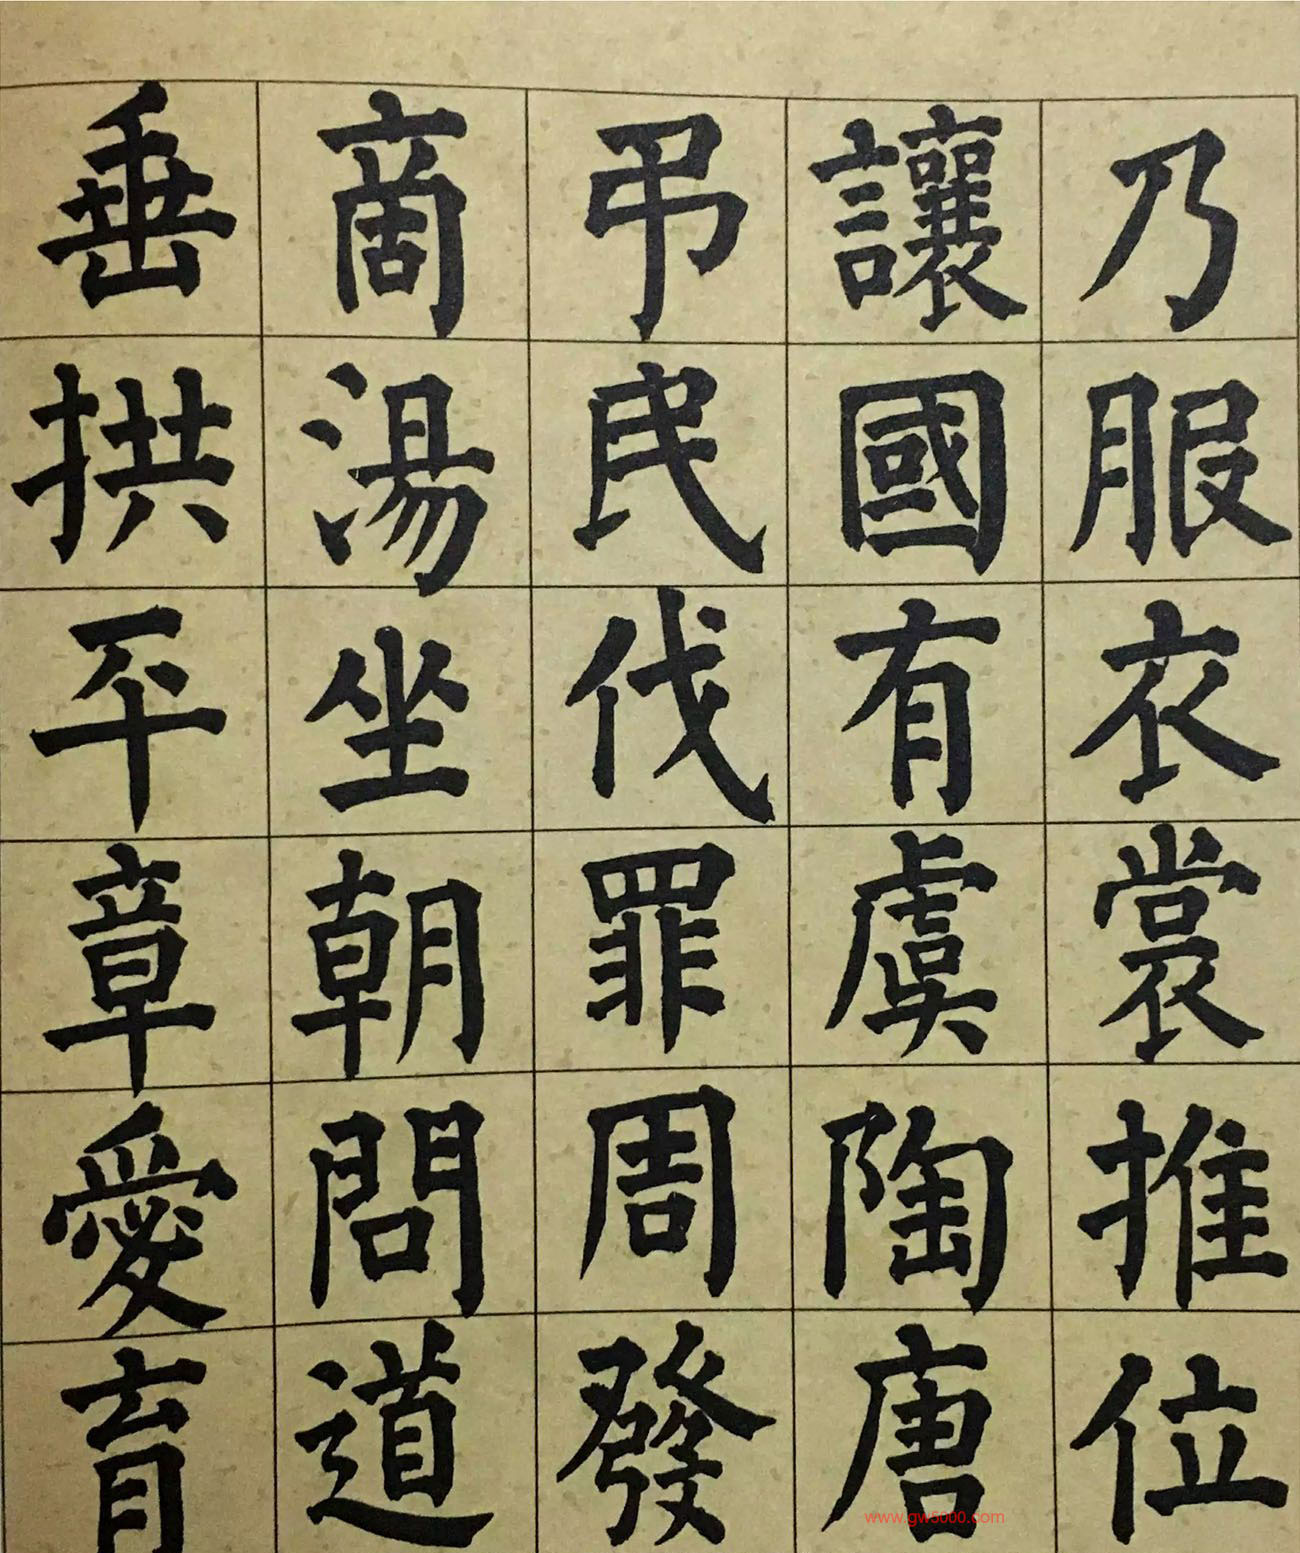 乃服衣裳推位
讓國有虞陶唐
弔民伐罪周發
商湯坐朝問道
垂拱平章愛育
www.gw5000.com